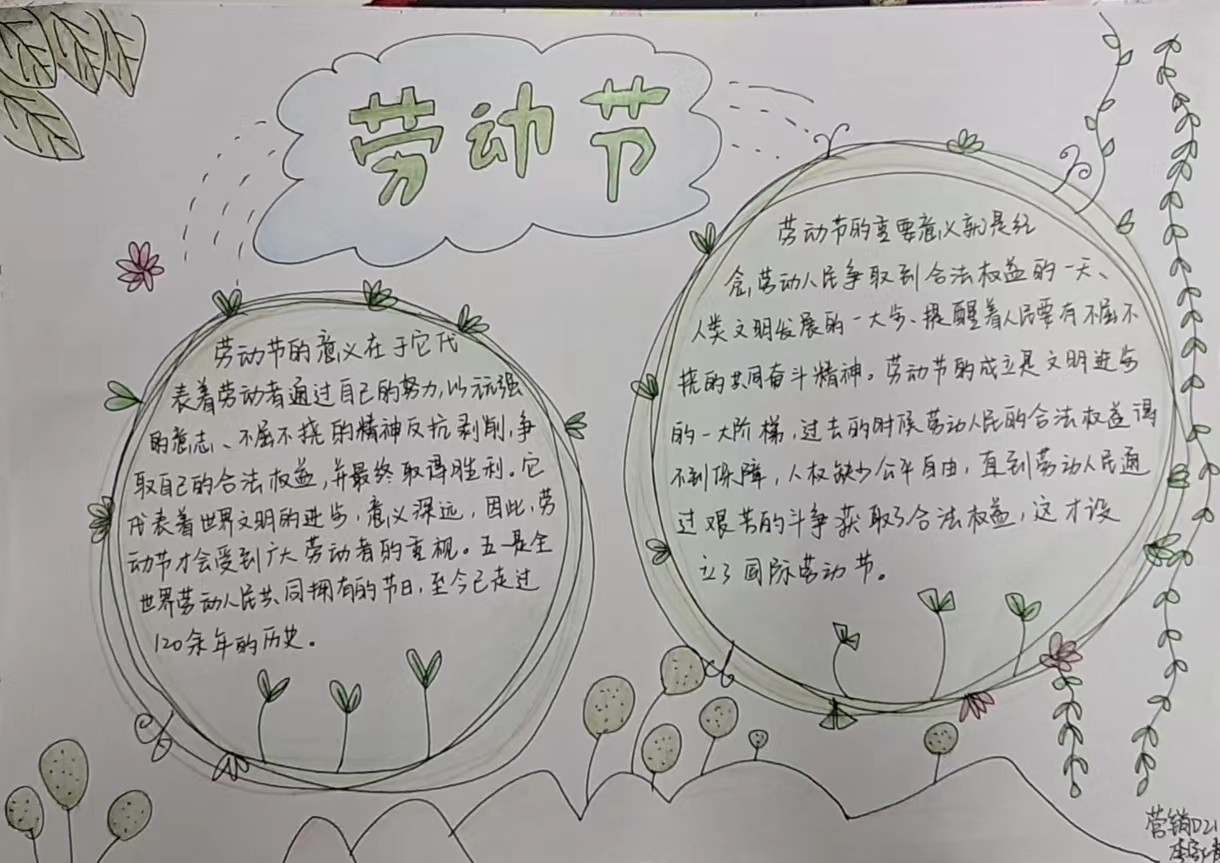 劳动节
劳动节的意义在于它代
表着劳动者通过自己的努力,以顽强
的意志、不屈不挠的精神反抗剥削,争
取自己的合法权益,并最终取得胜利。它
代表着世界文明的进步,意义深远,因此,劳
动节才会受到广大劳动者的重视。五一是全
世界劳动人民共同拥有的节日,至今已走过
120余年的历史。
劳动节的重要意义就是纪
念劳动人民争取到合法权益的一天、
人类文明发展的一大步、提醒着人民要有不屈不
挠的共同奋斗精神。劳动节的成立是文明进步
的一大阶梯,过去的时候劳动人民的合法权益得
不到保障,人权缺少公平自由,直到劳动人民通
过艰苦的斗争获取了合法权益,这才设
立了国际劳动节。
营销D21